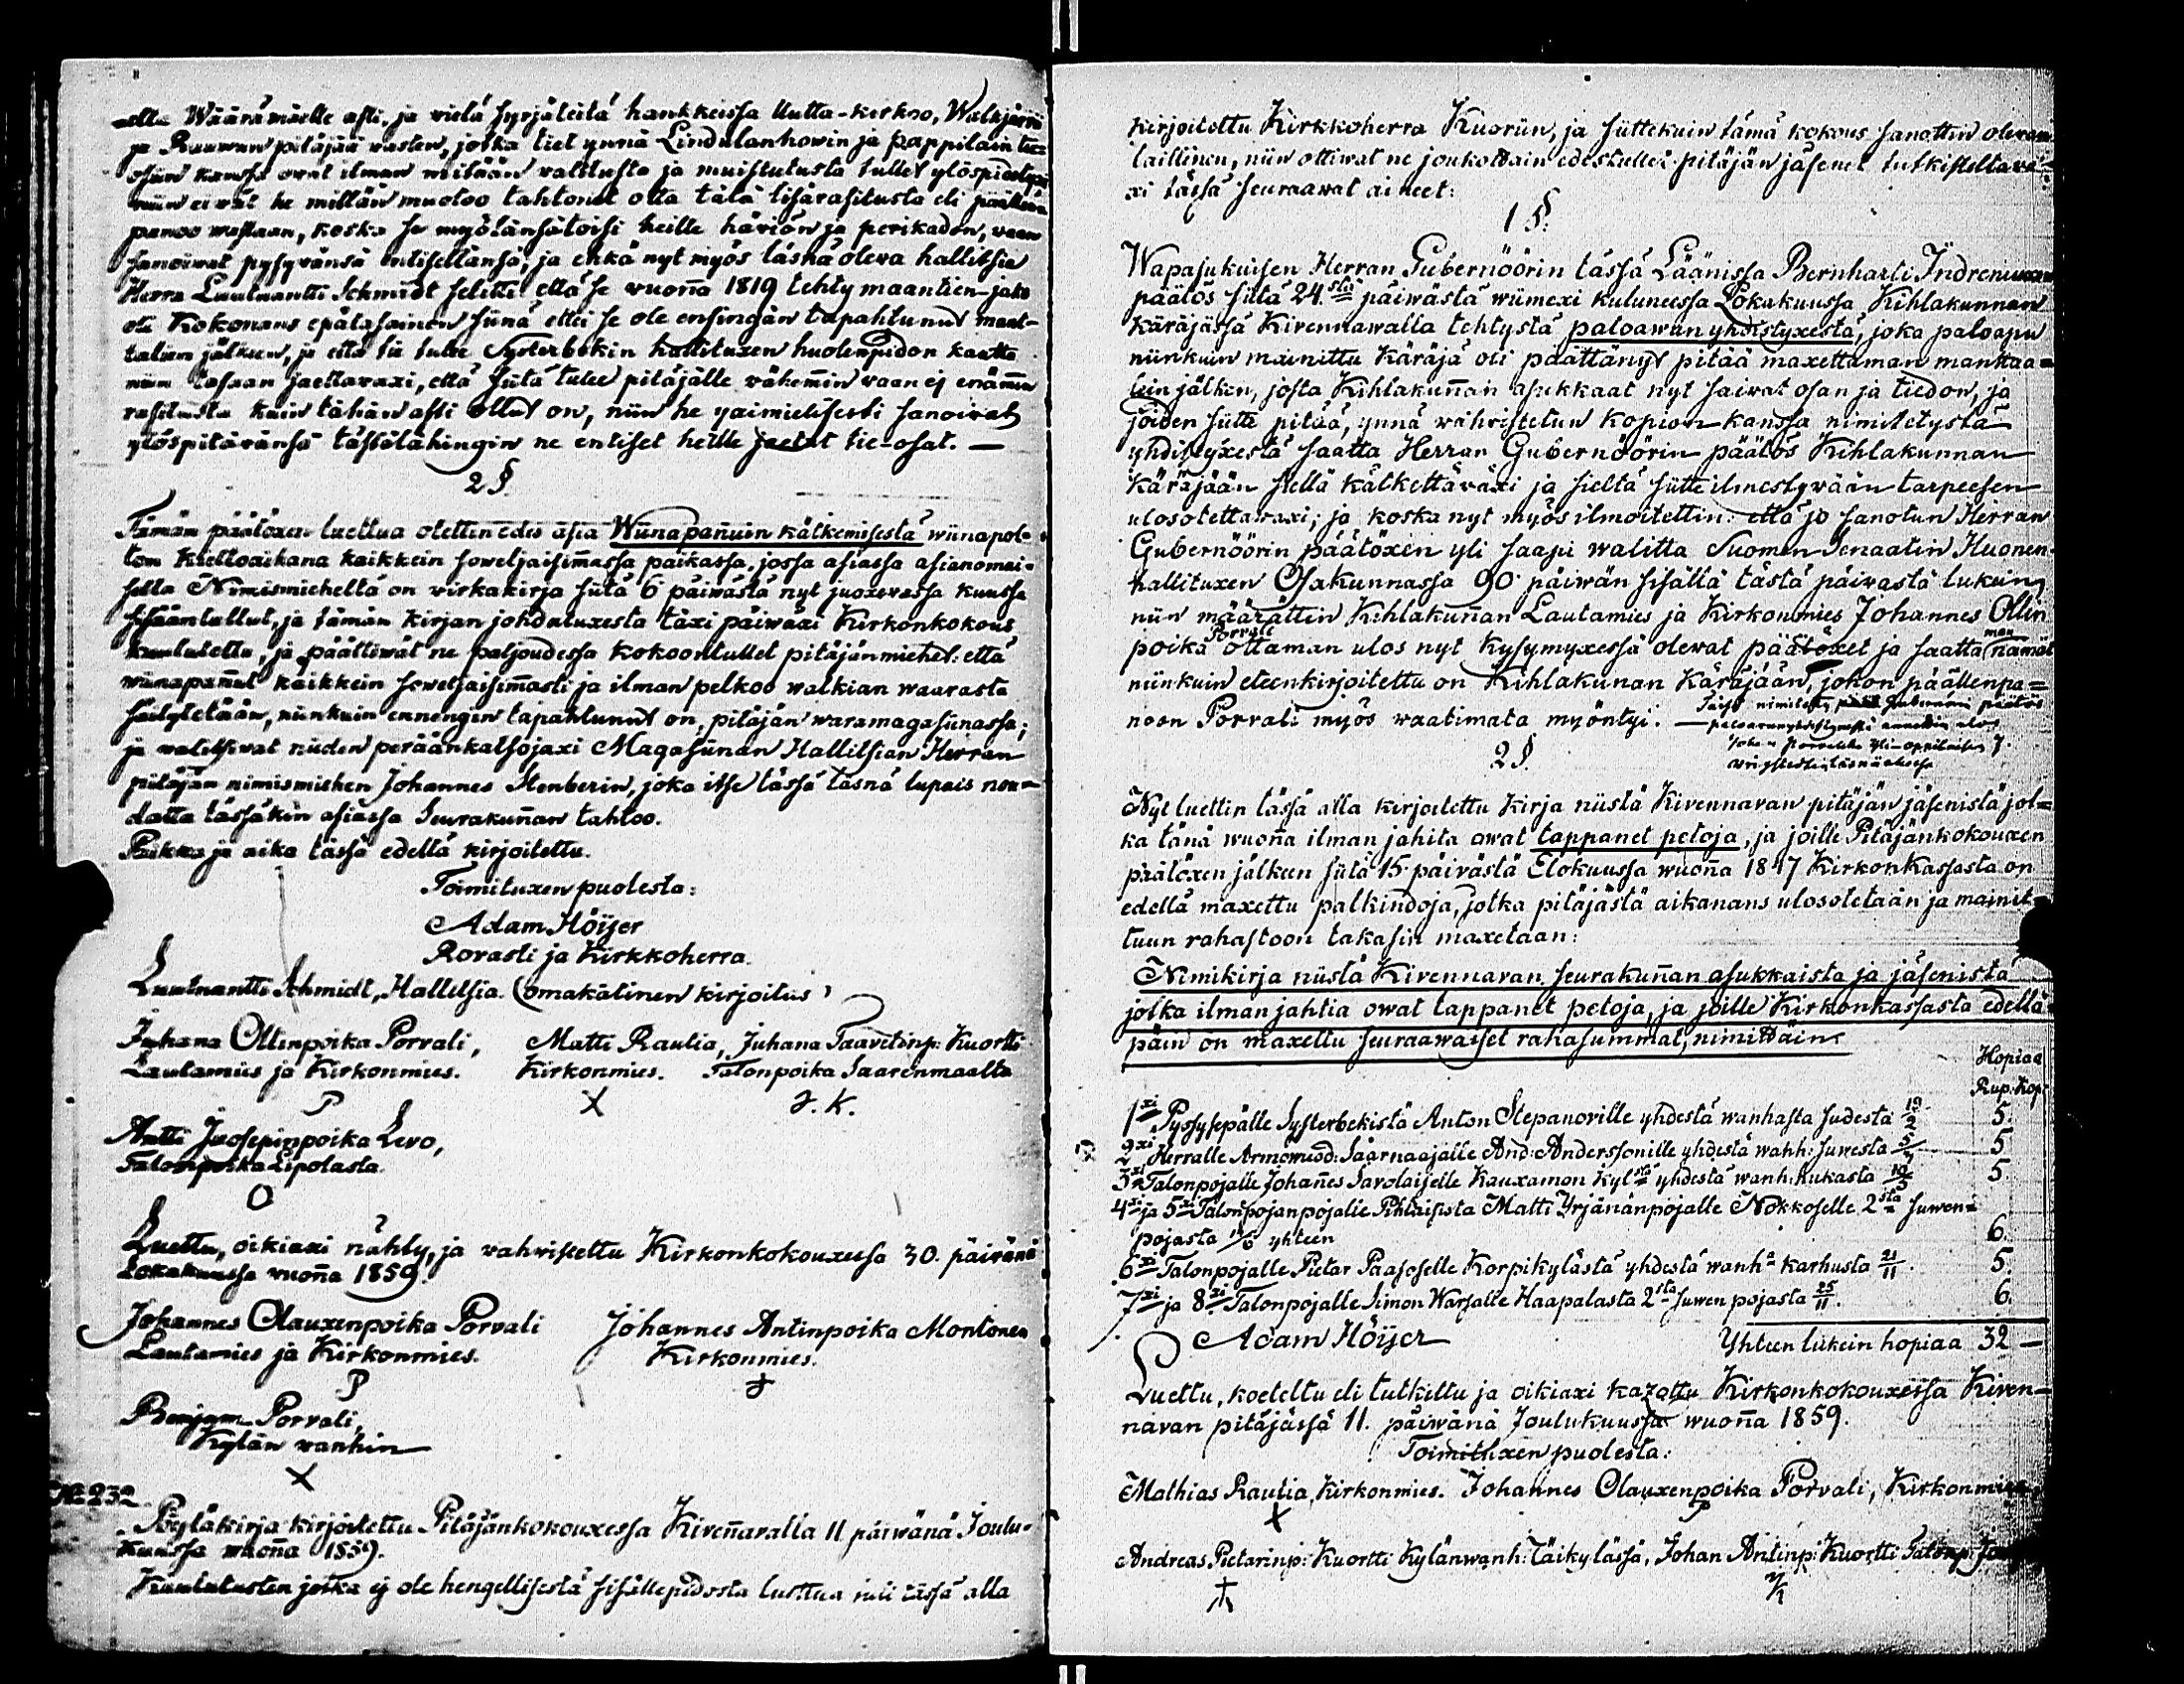 -ella Wäärämäelle asti, ja vielä syrjäteitä hankkeissa Uutta-kirkoo, Walkjärvi
ja Rauwun pitäjää vasten, jotka tiet ynnä Lindulanhowin ja pappilain tie-
osiin kanssa ovat ilman mitään valitusta ja muistutusta tullet ylöspidetyxi
niin eivät he millän muotoo tahtonut otta tätä lisärasitusta eli päällen-
panoo wastaan, koska se myötänsätoisi heille häviön ja perikadon, vaan
sanoiwat pysyvänsä entisellänsä; ja ehkä nyt myös läsnä oleva hallitsia
Herra Luutnantti Schmidt selitti että se vuoñna 1819 tehty maantien-jako
oli Kokonans epätasainen siinä ettei se ole ensingän tapahtunut mant-
talien jälkeen, ja että tie tulee Systerbekin hallituxen huolenpidon kautta
niin tasaan jaettavaxi, että siitä tulee pitäjälle vähem̃in vaan ej enäm̃en
rasitusta kuin tähän asti ollut on, niin he yximielisesti sanoivat
ylöspitävänsä tästälähingin ne entiset heille jaetut tie-osat. —
2 §.
Tämän päätöxen luettua otettin edes asia Wiinapañuin kätkemisestä wiinapol-
ton kieltoaikana kaikkein soweljaisim̃assa paikassa, jossa asiassa asianomai-
sella Nimismieheltä on virkakirja siitä 6 päiwästä nyt juoxevassa kuussa
sisääntullut, ja tämän kirjan johdatuxesta täxi päiwäxi Kirkonkokous
kuulutettu, ja päättiwät ne paljoudessa kokoontullet pitäjänmiehet: että
wiinapañnut kaikkein soweljaisim̃asti ja ilman pelkoo walkian waarasta
säilytetään, niinkuin ennengin tapahtunut on, pitäjän waramagasiinassa;
ja walitsivat niiden peräänkatsojaxi Magasiinan Hallitsian Herran
pitäjän nimismiehen Johannes Stenberin, joka itse tässä läsnä lupais nou-
datta tässäkin asiassa Seurakuñan tahtoo.
Paikka ja aika tässä edellä kirjoitettu.
Toimituxen puolesta:
Adam Höijer
Rovasti ja Kirkkoherra.
Luutnantti Schmidt, Hallitsia. (omakätinen kirjoitus)
Juhana Ollinpoika Porvali, Matti Rautia, Juhana Taavetinp: Kuortti
Lautamies ja Kirkonmies. Kirkonmies. Talonpoika Saarenmaalta
P X J. K.
Antti Juosepinpoika Levo,
Talonpoika Lipolasta.
O
Luettu, oikiaxi nähty, ja vahvistettu Kirkonkokouxessa 30. päivänä
Lokakuussa vuoñna 1859.
Johannes Olauxenpoika Porvali Johannes Antinpoika Montonen
Lautamies ja Kirkonmies. Kirkonmies.
P
Benjam Porvali,
Kylän vanhin
X
No 232.
Pöytäkirja kirjoitettu Pitäjänkokouxessa Kiveñavalla 11 päiwänä Joulu-
kuussa wuoñna 1859.
Kuulutusten jotka ej ole hengellisestä sisällepidosta luettua tuli tässä alla
kirjoitettu Kirkkoherra Kuoriin, ja siittekuin tämä kokous sanottin olevan
laillinen, niin ottiwat ne joukottain edestullet pitäjän jäsenet tutkisteltava-
xi tässä seuraawat aineet:
1 §.
Wapasukuisen Herran Gubernöörin tässä Läänissä Bernharti Indreniuxen
päätös siitä 24.stä päiwästä wiimexi kuluneessa Lokakuussa Kihlakunnan
Käräjässä Kivennawalla tehtystä paloawun yhdistyxestä, joka paloapu
niinkuin mainittu Käräjä oli päättänyt pitää maxettaman manttaa-
lein jälken, josta Kihlakuñan asukkaat nyt saivat osan ja tiedon, ja
joiden siitte pitää, ynnä vahvistetun kopion kanssa nimitetystä
yhdistyxestä saatta Herran Gubernöörin päätös Kihlakunnan
Käräjään siellä kätkettäväxi ja sieltä siitte ilmestyvään tarpeesen
ulosotettavaxi; ja koska nyt myös ilmoitettin: että jo sanotun Herran
Gubernöörin päätöxen yli saapi walitta Suomen Senaatin Huonen-
hallituxen Osakunnassa 90 päiwän sisällä tästä päivästä lukein,
niin määrättin Kihlakuñan Lautamies ja Kirkonmies Johannes Ollin
poika Porvali ottaman ulos nyt kysymyxessä olevat päätöxet ja saattaman nämät
niinkuin eteenkirjoitettu on Kihlakunan Käräjään, johon päällenpa=
noon Porvali myös waatimata myöntyi: — Tässä nimitetty Gubernöörin päätös
paloavunyhdistyxestä annettin ulos
2 §.
Nyt luettin tässä alla kirjoitettu kirja niistä Kivennavan pitäjän jäsenistä jot=
ka tänä wuoñna ilman jahita owat tappanet petoja, ja joille Pitäjänkokouxen
päätöxen jälkeen siitä 15 päivästä Elokuussa wuoñna 1847 Kirkonkassasta on
edellä maxettu palkindoja, jotka pitäjästä aikanans ulosotetaan ja mainit-
tuun rahastoon takasin maxetaan:
Nimikirja niistä Kivennavan seurakuñan asukkaista ja jäsenistä
jotka ilman jahtia owat tappanet petoja, ja joille Kirkonkassasta edellä-
päin on maxettu seuraawaiset rahasummat, nimittäin:
Hopiaa
Rup: Kop:
1xi Pyssysepälle Systerbekistä Anton Stepanoville yhdestä wanhasta sudesta 19/2. 5.
2xi Herralle Armowuod: Saarnaajalle And: Anderssonille yhdestä wanh: suwesta 5/ 5
3xi Talonpojalle Johañes Savolaiselle Kauxamon Kylstä yhdestä wanh: hukasta 5.
4xi ja 5xi Talonpojanpojalle Pihlaisista Matti Yrjänänpojalle Nokkoselle 2sta suwen=
pojasta yhteen 6.
6xi Talonpojalle Pietar Paasoselle Korpikylästä yhdestä wanha karhusta 21/11. 5.
7xi ja 8xi Talonpojalle Simon Warsalle Haapalasta 2sta suwen pojasta 25/11. 6.
Adam Höijer Yhteen lukein hopiaa 32 —
Luettu, koeteltu eli tutkittu ja oikiaxi kazottu Kirkonkokouxessa Kiven-
navan pitäjässä 11. päiwänä Joulukuussa wuoñna 1859.
Toimituxen puolesta:
Mathias Rautia, Kirkonmies. Johannes Olauxenpoika Porvali, Kirkonmies,
X P
Andreas Pietarinp: Kuortti Kylänwanh: Täikylässä, Johan Antinp: Kuortti Talonp: